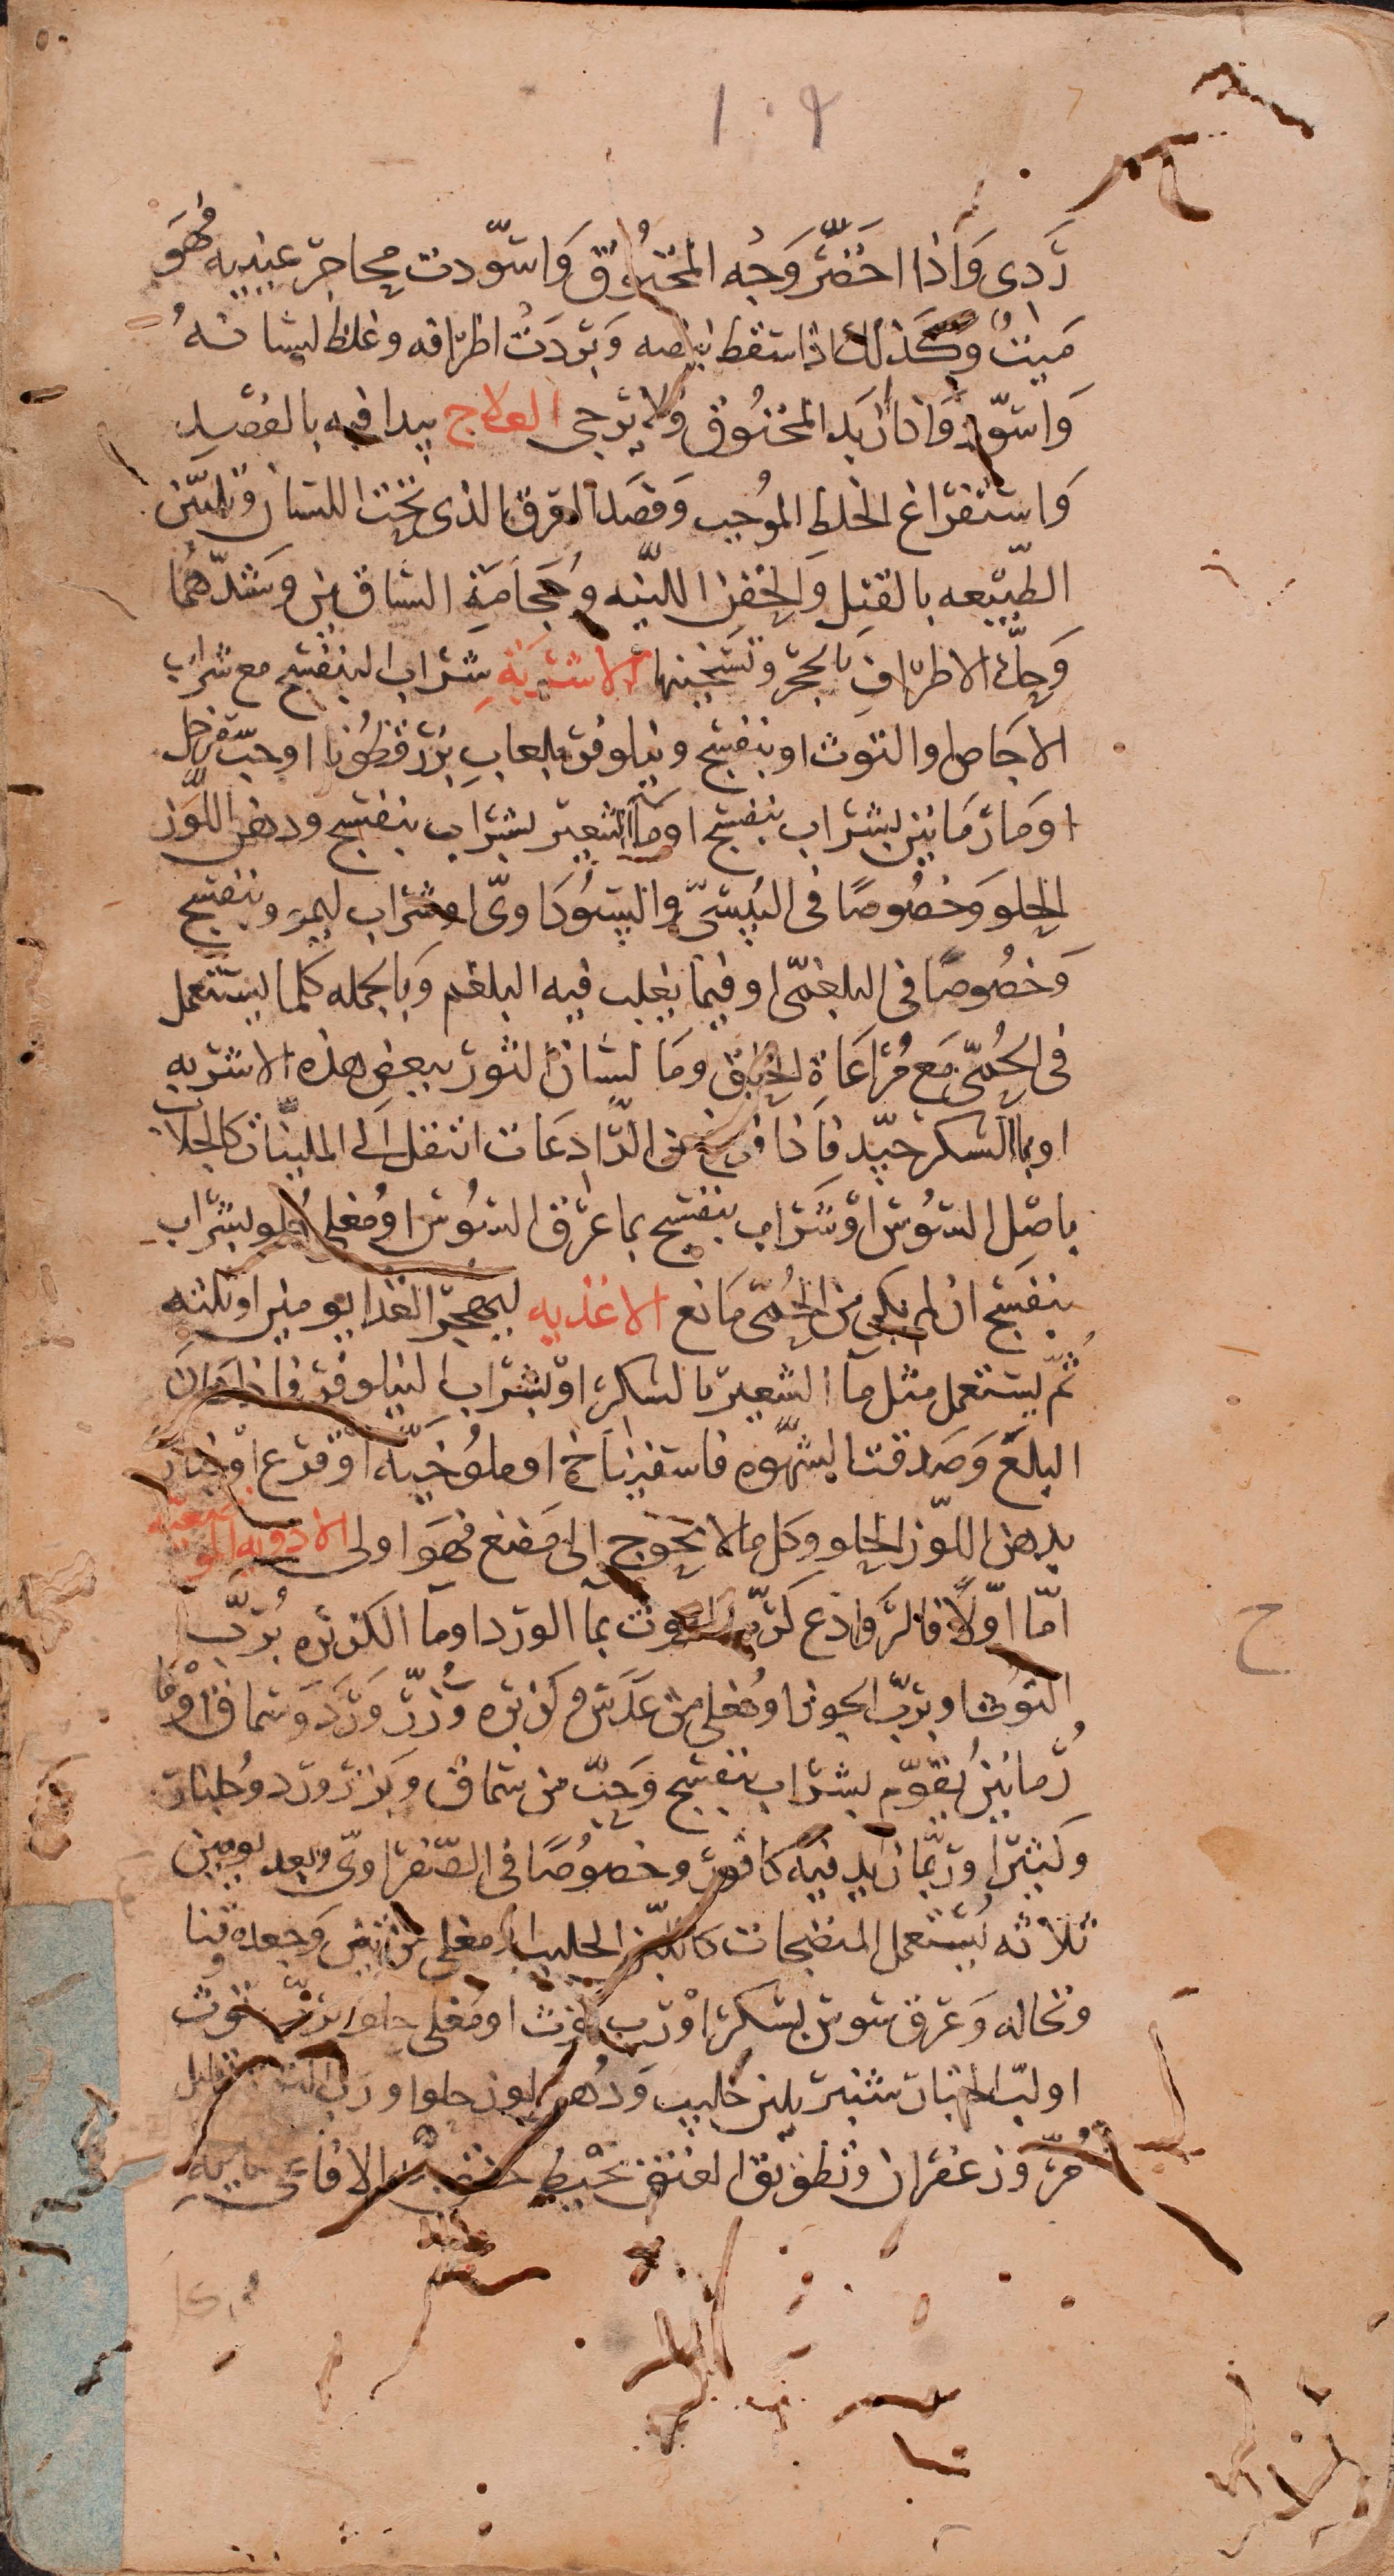 ١٠٩
ردى واذا اخضر وجه المخنوق واسودت محاجر عينيه فهو
ميت وكذلك اذا سقط نبضه وبردت اطرافه وغلظ لسانه
واسود واذا ازبد المخنوق فلا يرجى العلاج يبدا فيه بالفصد
واستفراغ الخلط الموجب وفصد العرق الذى تحت اللسان وتليين
الطبيعه بالفتل والحقن اللينه وحجامة الساقين وشدهما
وحك الاطراف بالحجر وتسخينها الاشربة شراب البنفسج مع شراب
الاجاص او التوت او بنفسج ونيلوفر بلعاب بزر قطونا او حب سفرجل
او ما رمانين بشراب بنفسج او ماء الشعير بشراب بنفسج ودهن اللوز
الحلو وخصوصا فى اليبسى والسوداوى او شراب ليمو وبنفسج
وخصوصا فى البلغمى او فيما يغلب فيه البلغم وبالجمله كلما يستعمل
فى الحمى مع مراعاة الحلق وما لسان الثور ببعض هذه الاشربه
او بماء السكر جيد فاذا فرغ من الرادعات انتقل الى الملينات كالجلاب
باصل السوس او شراب بنفسج بما عرق السوس او مغلى حلو بشراب
بنفسج ان لم يكن من الحمى مانع الاغذيه ليهجر الغذا يومين او ثلثه
ثم يستعمل مثل ما الشعير بالسكر او بشراب النيلوفر فاذا امكن
البلع وصدقت الشهوه فاسفيناخ او ملوخيه او قرع او خباز
بدهن اللوز الحلو وكل ما لا يحوج الى مضغ فهو اولى الادويه الموضعيه
اما اولا فالروادع كرب التوت بما الورد او ما الكزبره برب
التوت او برب الجوز او مغلى من عدس وكزبره وزر ورد وسماق او ما
رمانين يقوم بشراب بنفسج وحب من سماق وبزر ورد وجلنار
وكثيرا وربما زيد فيه كافور وخصوصا فى الصفراوى وبعد يومين
ثلاثه يستعمل المنضجات كاللبن الحليب او مغلى من تين وجعده قنا
ونخاله وعرق سوس بسكر او رب توت او مغلى حلو برب توت
او لب الخيار شنبر بلبن حليب ودهن لوز حلو او رب التوت
مر وزعفران وتطويق العنق بخيط خنق به الافاعى